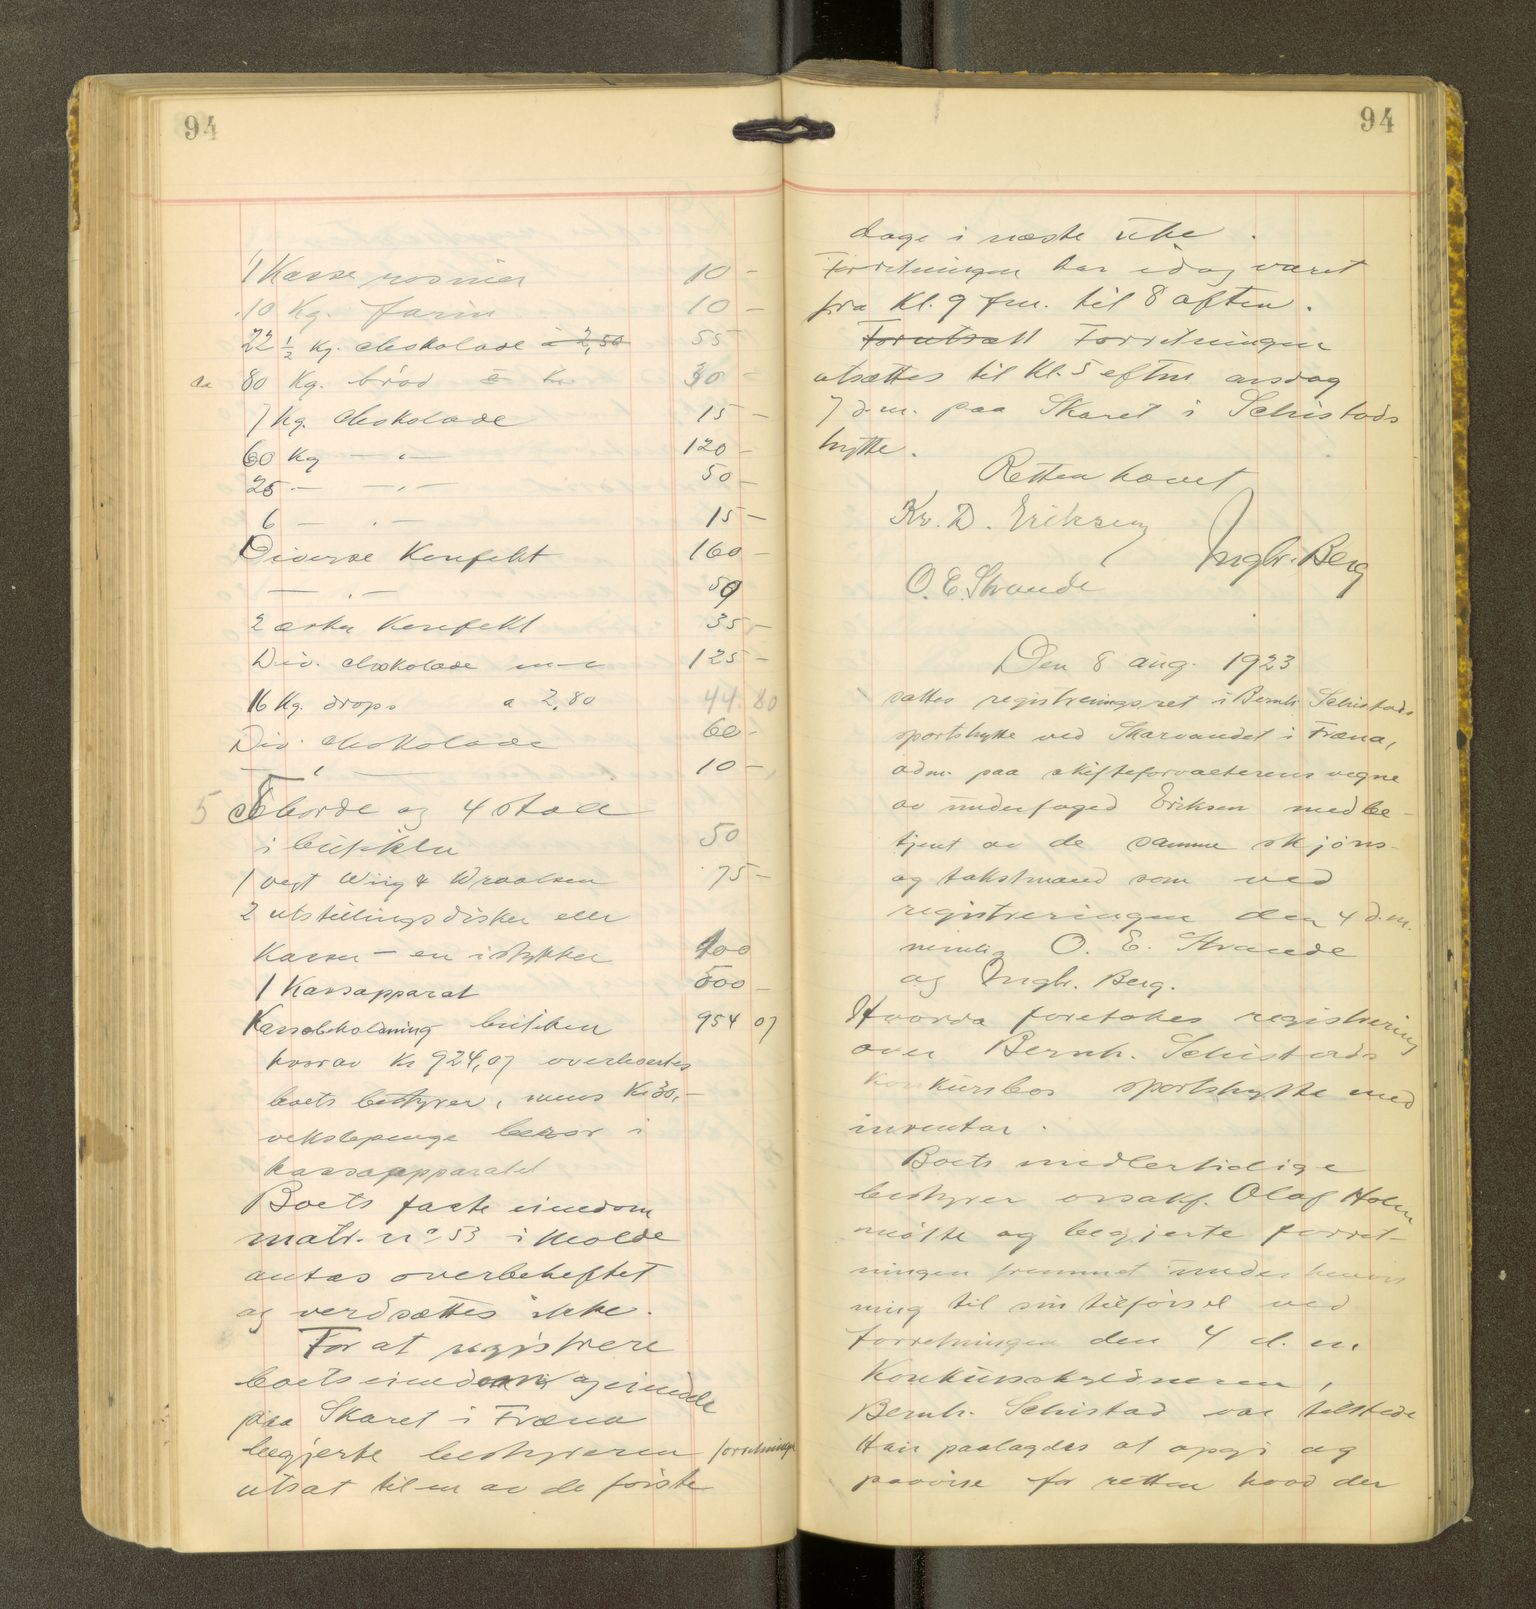 94
1 Kasse rosiner 10 -
10 Kg. farin 10 -
22 1/2 Kg. chokolade à 2,50 55
80 Kg. brød 30 -
7 Kg. chokolade 15 -
60 Kg — " — 120 -
25 - — " — 50 -
6 — " — 15 -
Diverse Konfekt 160 -
— " — 50
2 æsker Konfekt 35 -
Div. chokolade m-e 125 -
16 Kg. drops a 2,80 44.80
Div. chokolade 60 -
— " — 10 -
5 borde og 4 stole
i butikken 50
1 vegt Wiig & Wraalsen 75 -
2 utstillingsdisker eller
kasser - en i stykker 100
1 Kassapparat 500 -
Kassabeholdning butikken 954 07
hvorav Kr 924,07 overleveres
boets bestyrer, mens Kr 30,-
vekslepenge beror i
kassaapparatet
Boets faste eiendom
matr. nº 53 i Molde
antas overbeheftet
og verdsættes ikke.
For at registrere
boets eiendom og eiendele
paa Skaret i Fræna
begjerte bestyreren forretningen
utsat til en av de første
94
dage i næste uke.
Forretningen har idag varet
fra Kl. 9 fm. til 8 aften.
Forutsatt Forretningen
utsættes til Kl. 5 eftm onsdag
7 d.m. paa Skaret i Schistads
hytte.
Retten hævet
Kr. D. Eriksen
Ingbr. Berg
O. E. Strande
Den 8 aug. 1923
sattes registreringsret i Bernh. Schistads
sportshytte ved Skarvandet i Fræna,
adm. paa skifteforvalterens vegne
av underfoged Eriksen med be-
tjent av de samme skjøns-
og takstmænd som ved
registreringen den 4 d.m.
nemlig O. E. Strande
og Ingbr. Berg.
Hvorda foretokes registrering
over Bernh. Schistads
konkursbos sportshytte med
inventar.
Boets midlertidige
bestyrer o.r.sakf. Olaf Holm
møtte og begjerte forret-
ningen fremmet under henvis
ning til sin tilførsel ved
forretningen den 4 d. m.
Konkursskyldneren,
Bernh. Schistad var tilstede
Han paalagdes at opgi og
paavise for retten hvad der